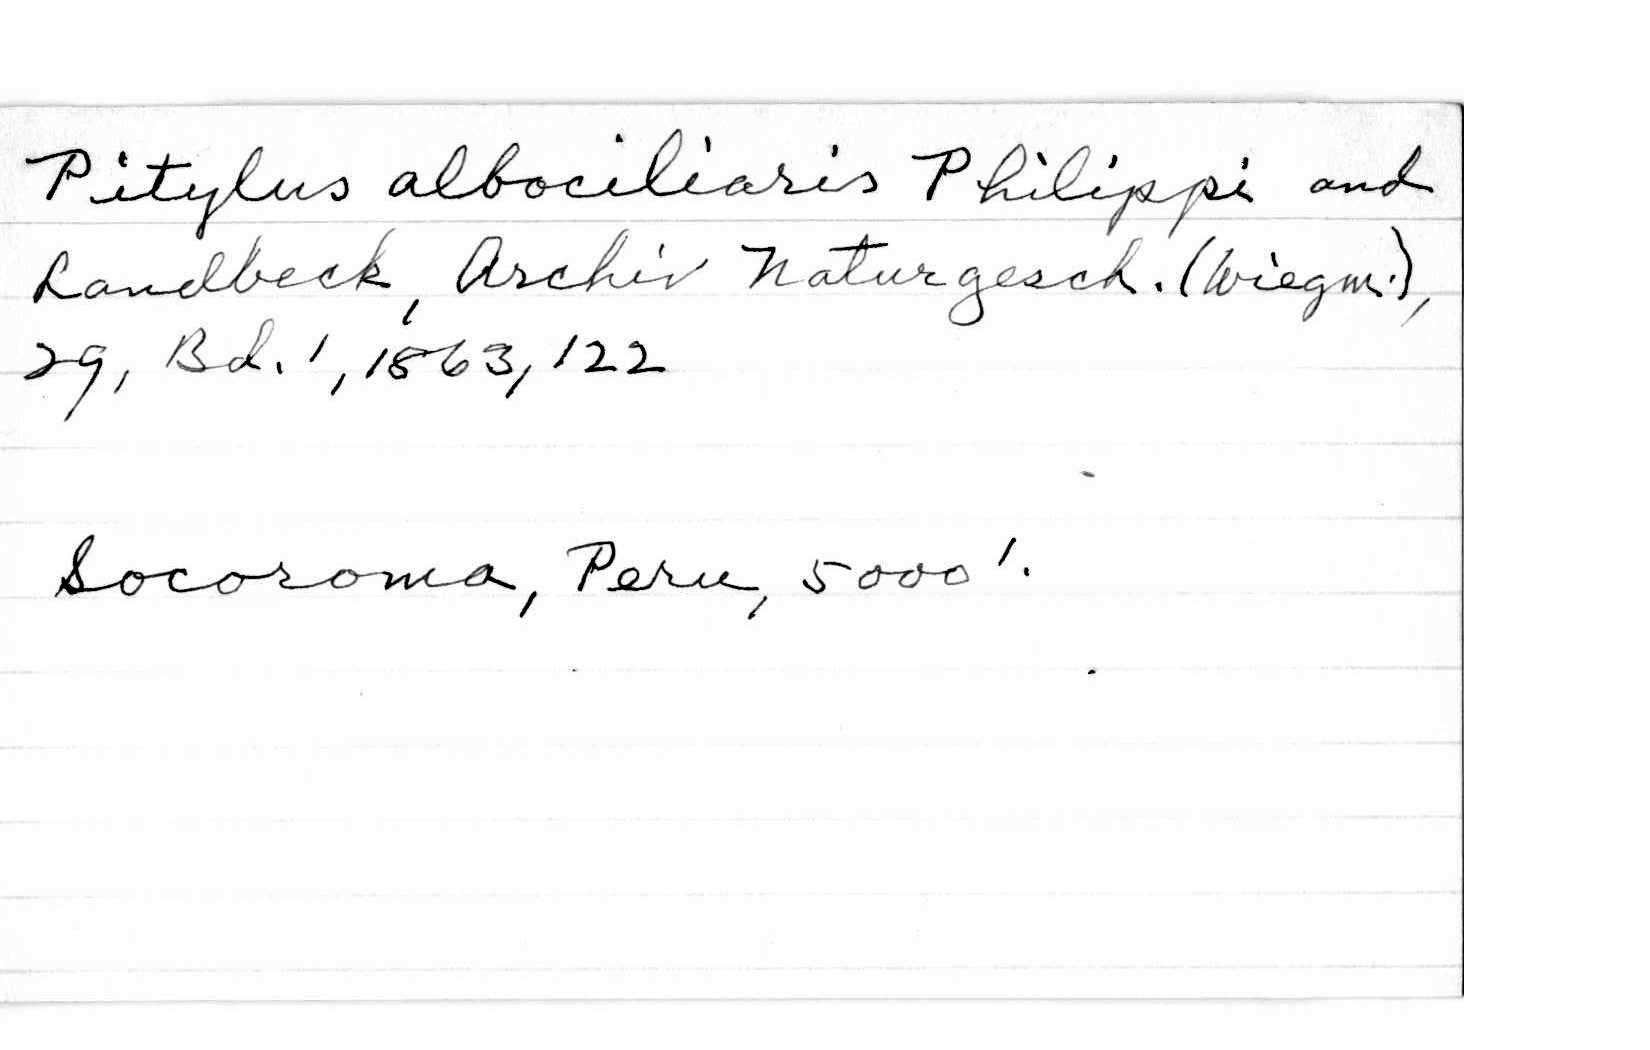 Pitylus albociliaris Philippi and
Landbeck, Archiv Naturgesch. (Wiegm.),
29, Bd. 1, 1863, 122
Socoroma, Peru, 5000'.